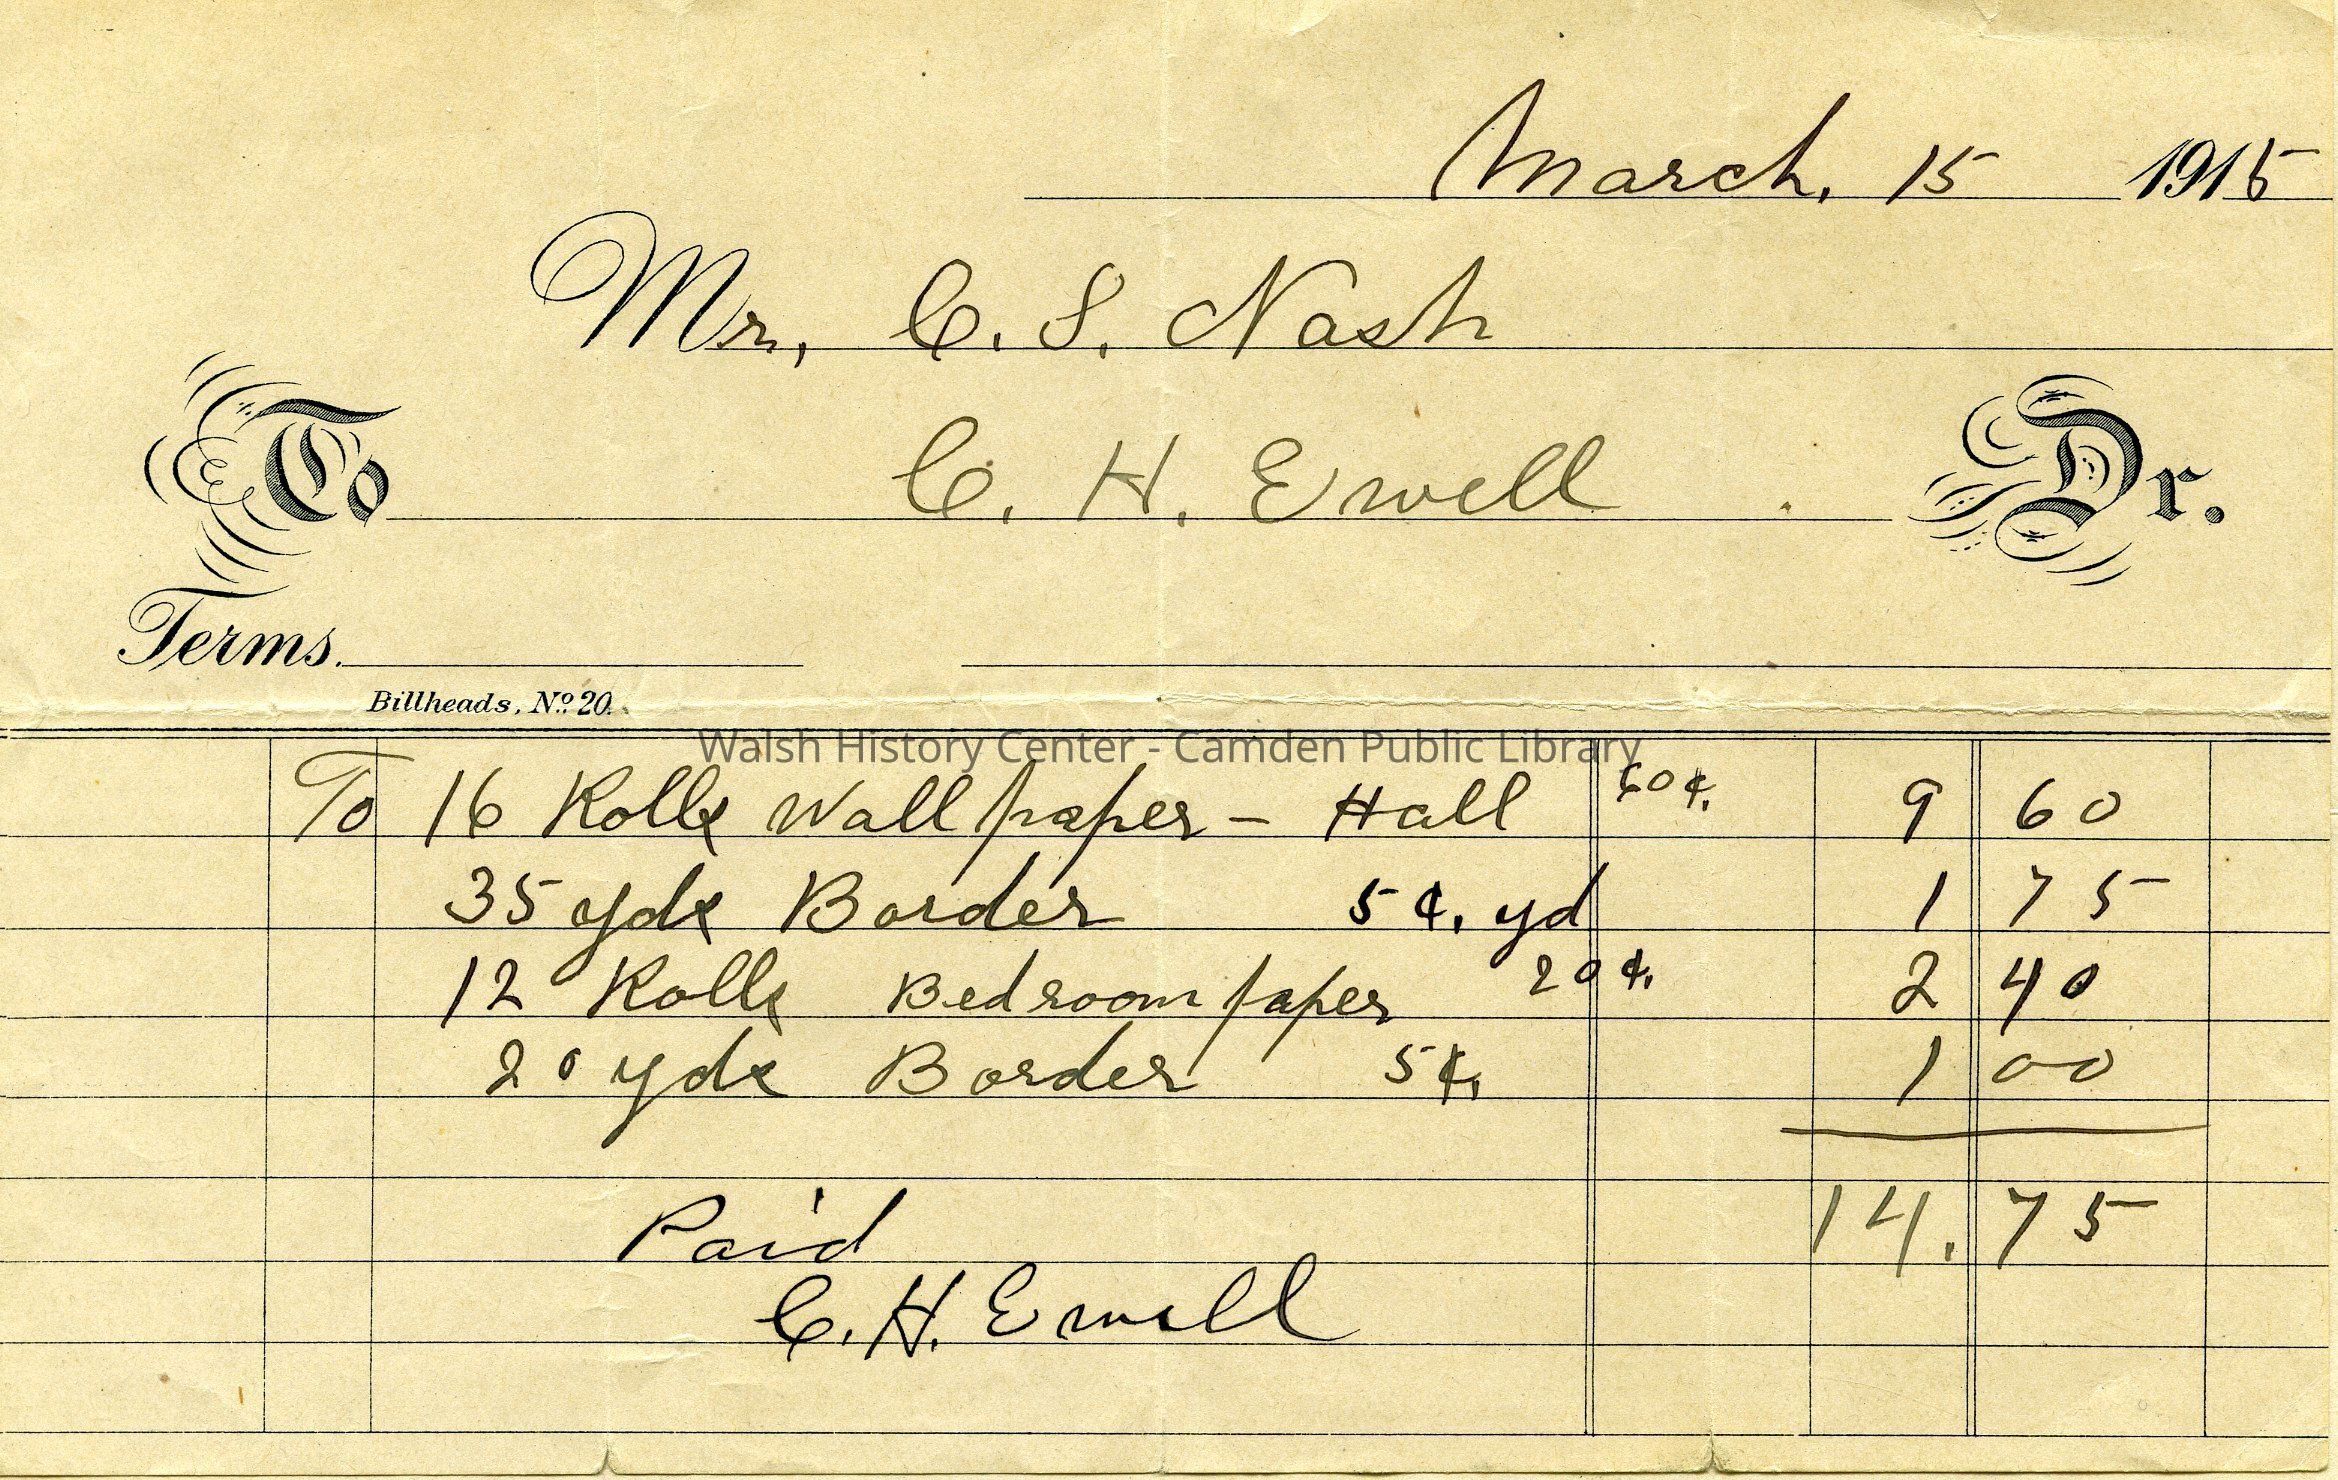 March, 15 1915
Mr, C. S. Nash
To C. H. Ewell Dr.
Terms.
Billheads, No. 20.
Walsh History Center - Camden Public Library
To 16 Rolls Wall paper - Hall 60¢. 9 60
35 yds Border 5¢. yd 1 75
12 Rolls Bedroom paper 20¢. 2 40
20 yds Border 5¢. 1 00
14. 75
Paid
C. H. Ewell